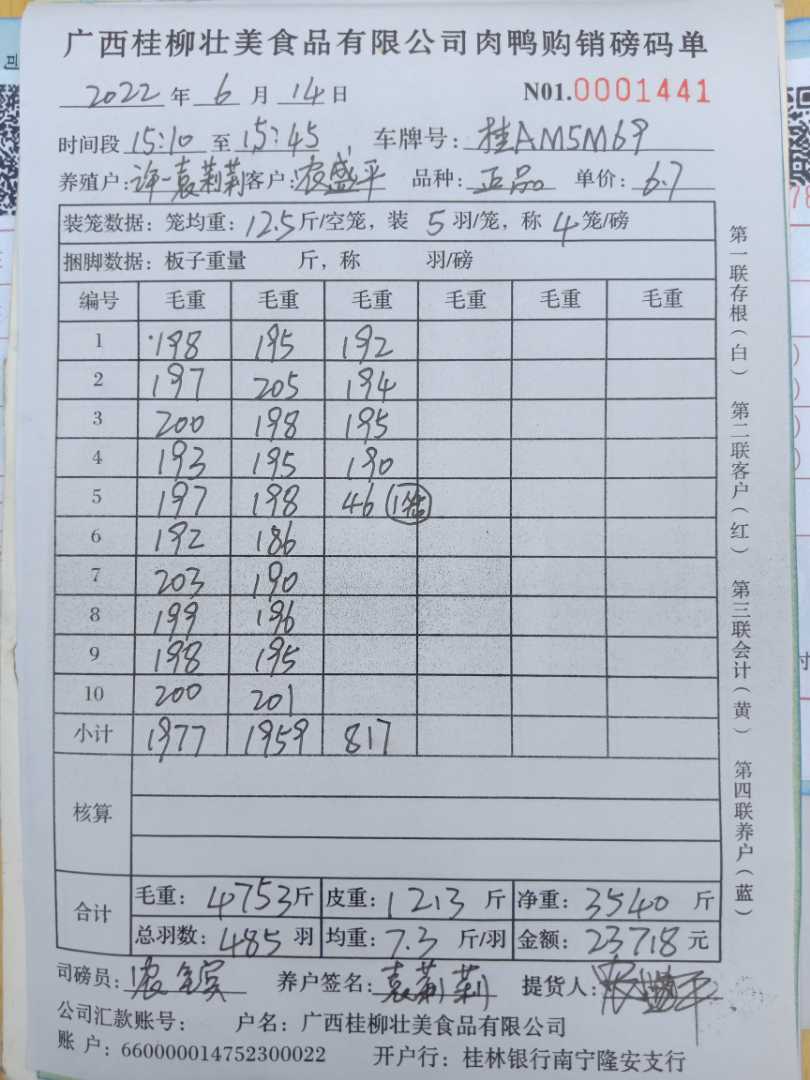 广西桂柳壮美食品有限公司肉鸭购销磅码单
2022 年 6 月 14 日 N01.0001441
时间段 15:10 至 15:45 车牌号: 桂AM5M69
养殖户: 许-袁莉莉 客户: 农盛平 品种: 正品 单价: 6.7
装笼数据: 笼均重: 12.5 斤/空笼, 装 5 羽/笼, 称 4 笼/磅
捆脚数据: 板子重量 斤, 称 羽/磅
编号 毛重 毛重 毛重 毛重 毛重 毛重
1 198 195 192
2 197 205 194
3 200 198 195
4 193 195 190
5 197 198 46 1笼
6 192 186
7 203 190
8 199 196
9 198 195
10 200 201
小计 1977 1959 817
核算
合计 毛重: 4753 斤 皮重: 1213 斤 净重: 3540 斤
总羽数: 485 羽 均重: 7.3 斤/羽 金额: 23718 元
司磅员: 养户签名: 袁莉莉 提货人: 农盛平
公司汇款账号: 户名: 广西桂柳壮美食品有限公司
账户: 660000014752300022 开户行: 桂林银行南宁隆安支行
第一联存根(白) 第二联客户(红) 第三联会计(黄) 第四联养户(蓝)